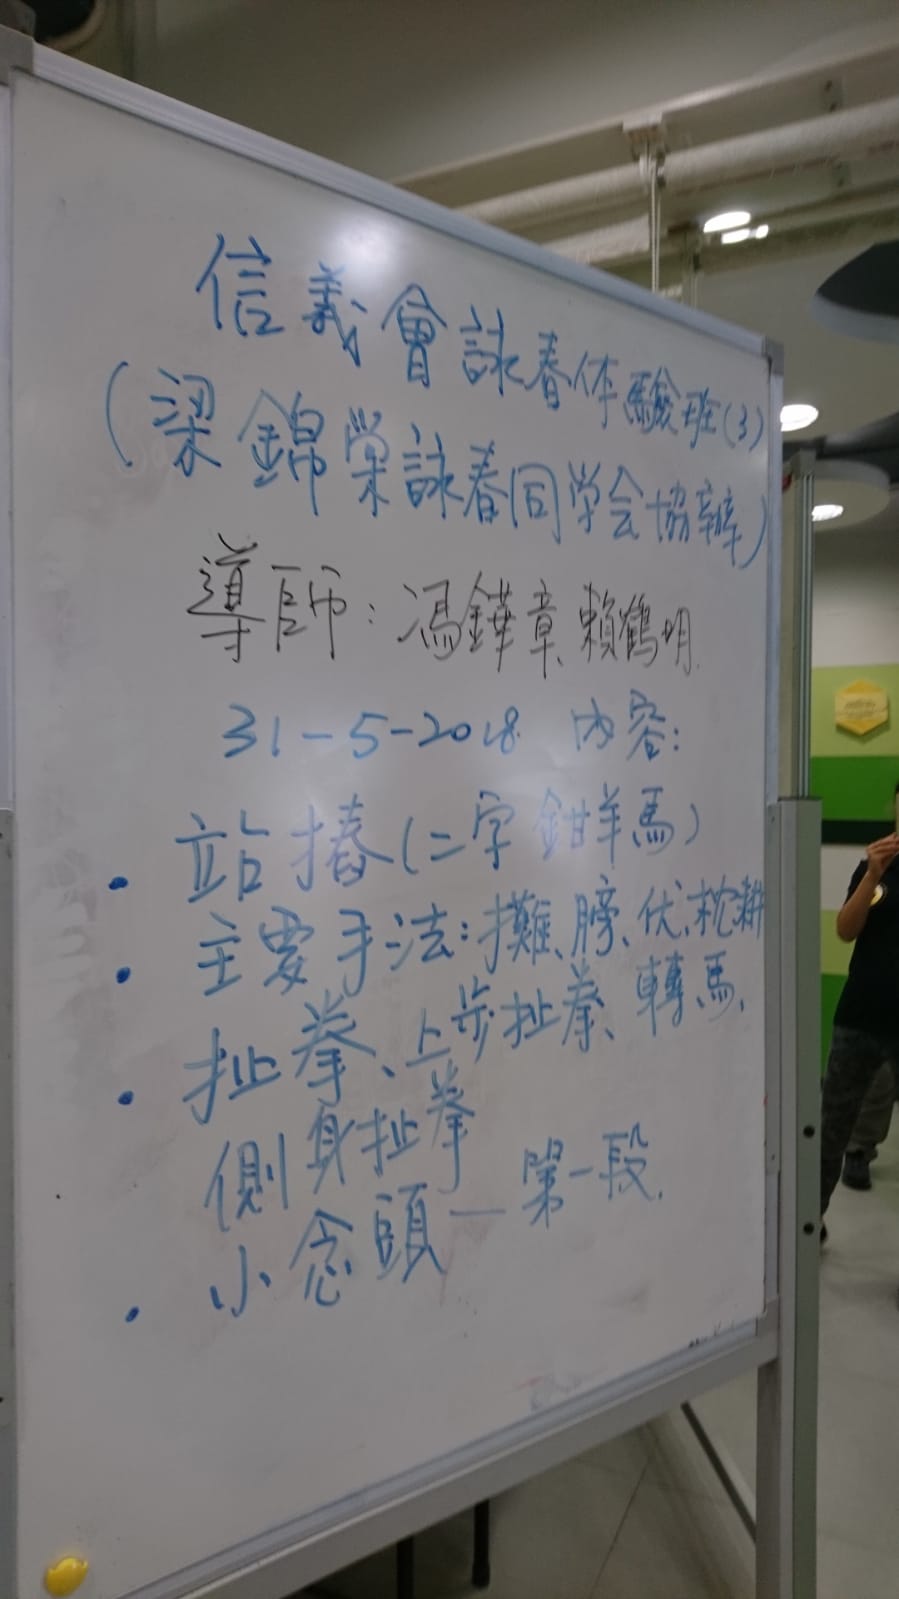 信義會詠春体驗班(3)
(梁錦棠詠春同学会協辦)
導師：馮鏵章、賴鶴明
31-5-2018 内容：
・站摏(二字鉗羊馬)
・主要手法：攤、膀、伏、枕、耕
・扯拳、上步扯拳、轉馬、
側身扯拳
・小念頭—第一段.